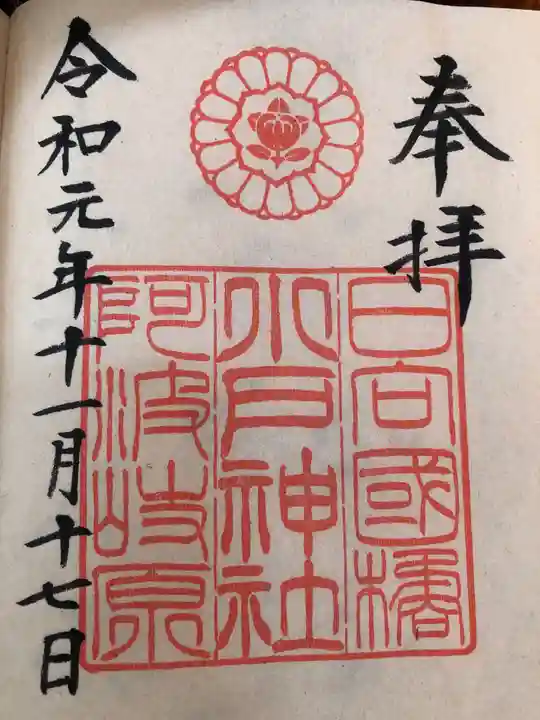 奉拝
日向國橘
小戸神社
阿波岐原
令和元年十一月十七日